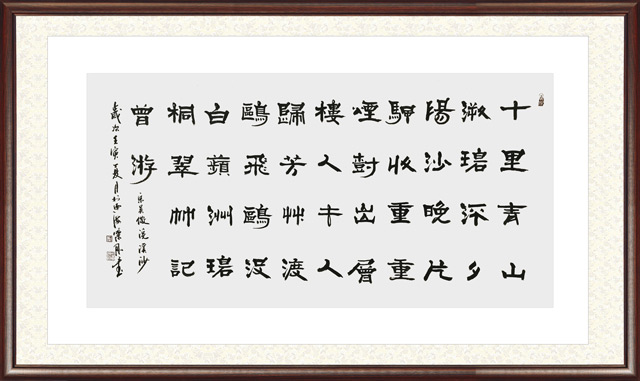 十里青山
溯碧流夕
陽沙晚片
帆收重重
煙樹出層
樓人去人
歸芳艸渡
鷗飛鷗没
白蘋洲碧
桐翠竹記
曾游
宋吴儆浣溪沙
歲次壬寅夏月於
書